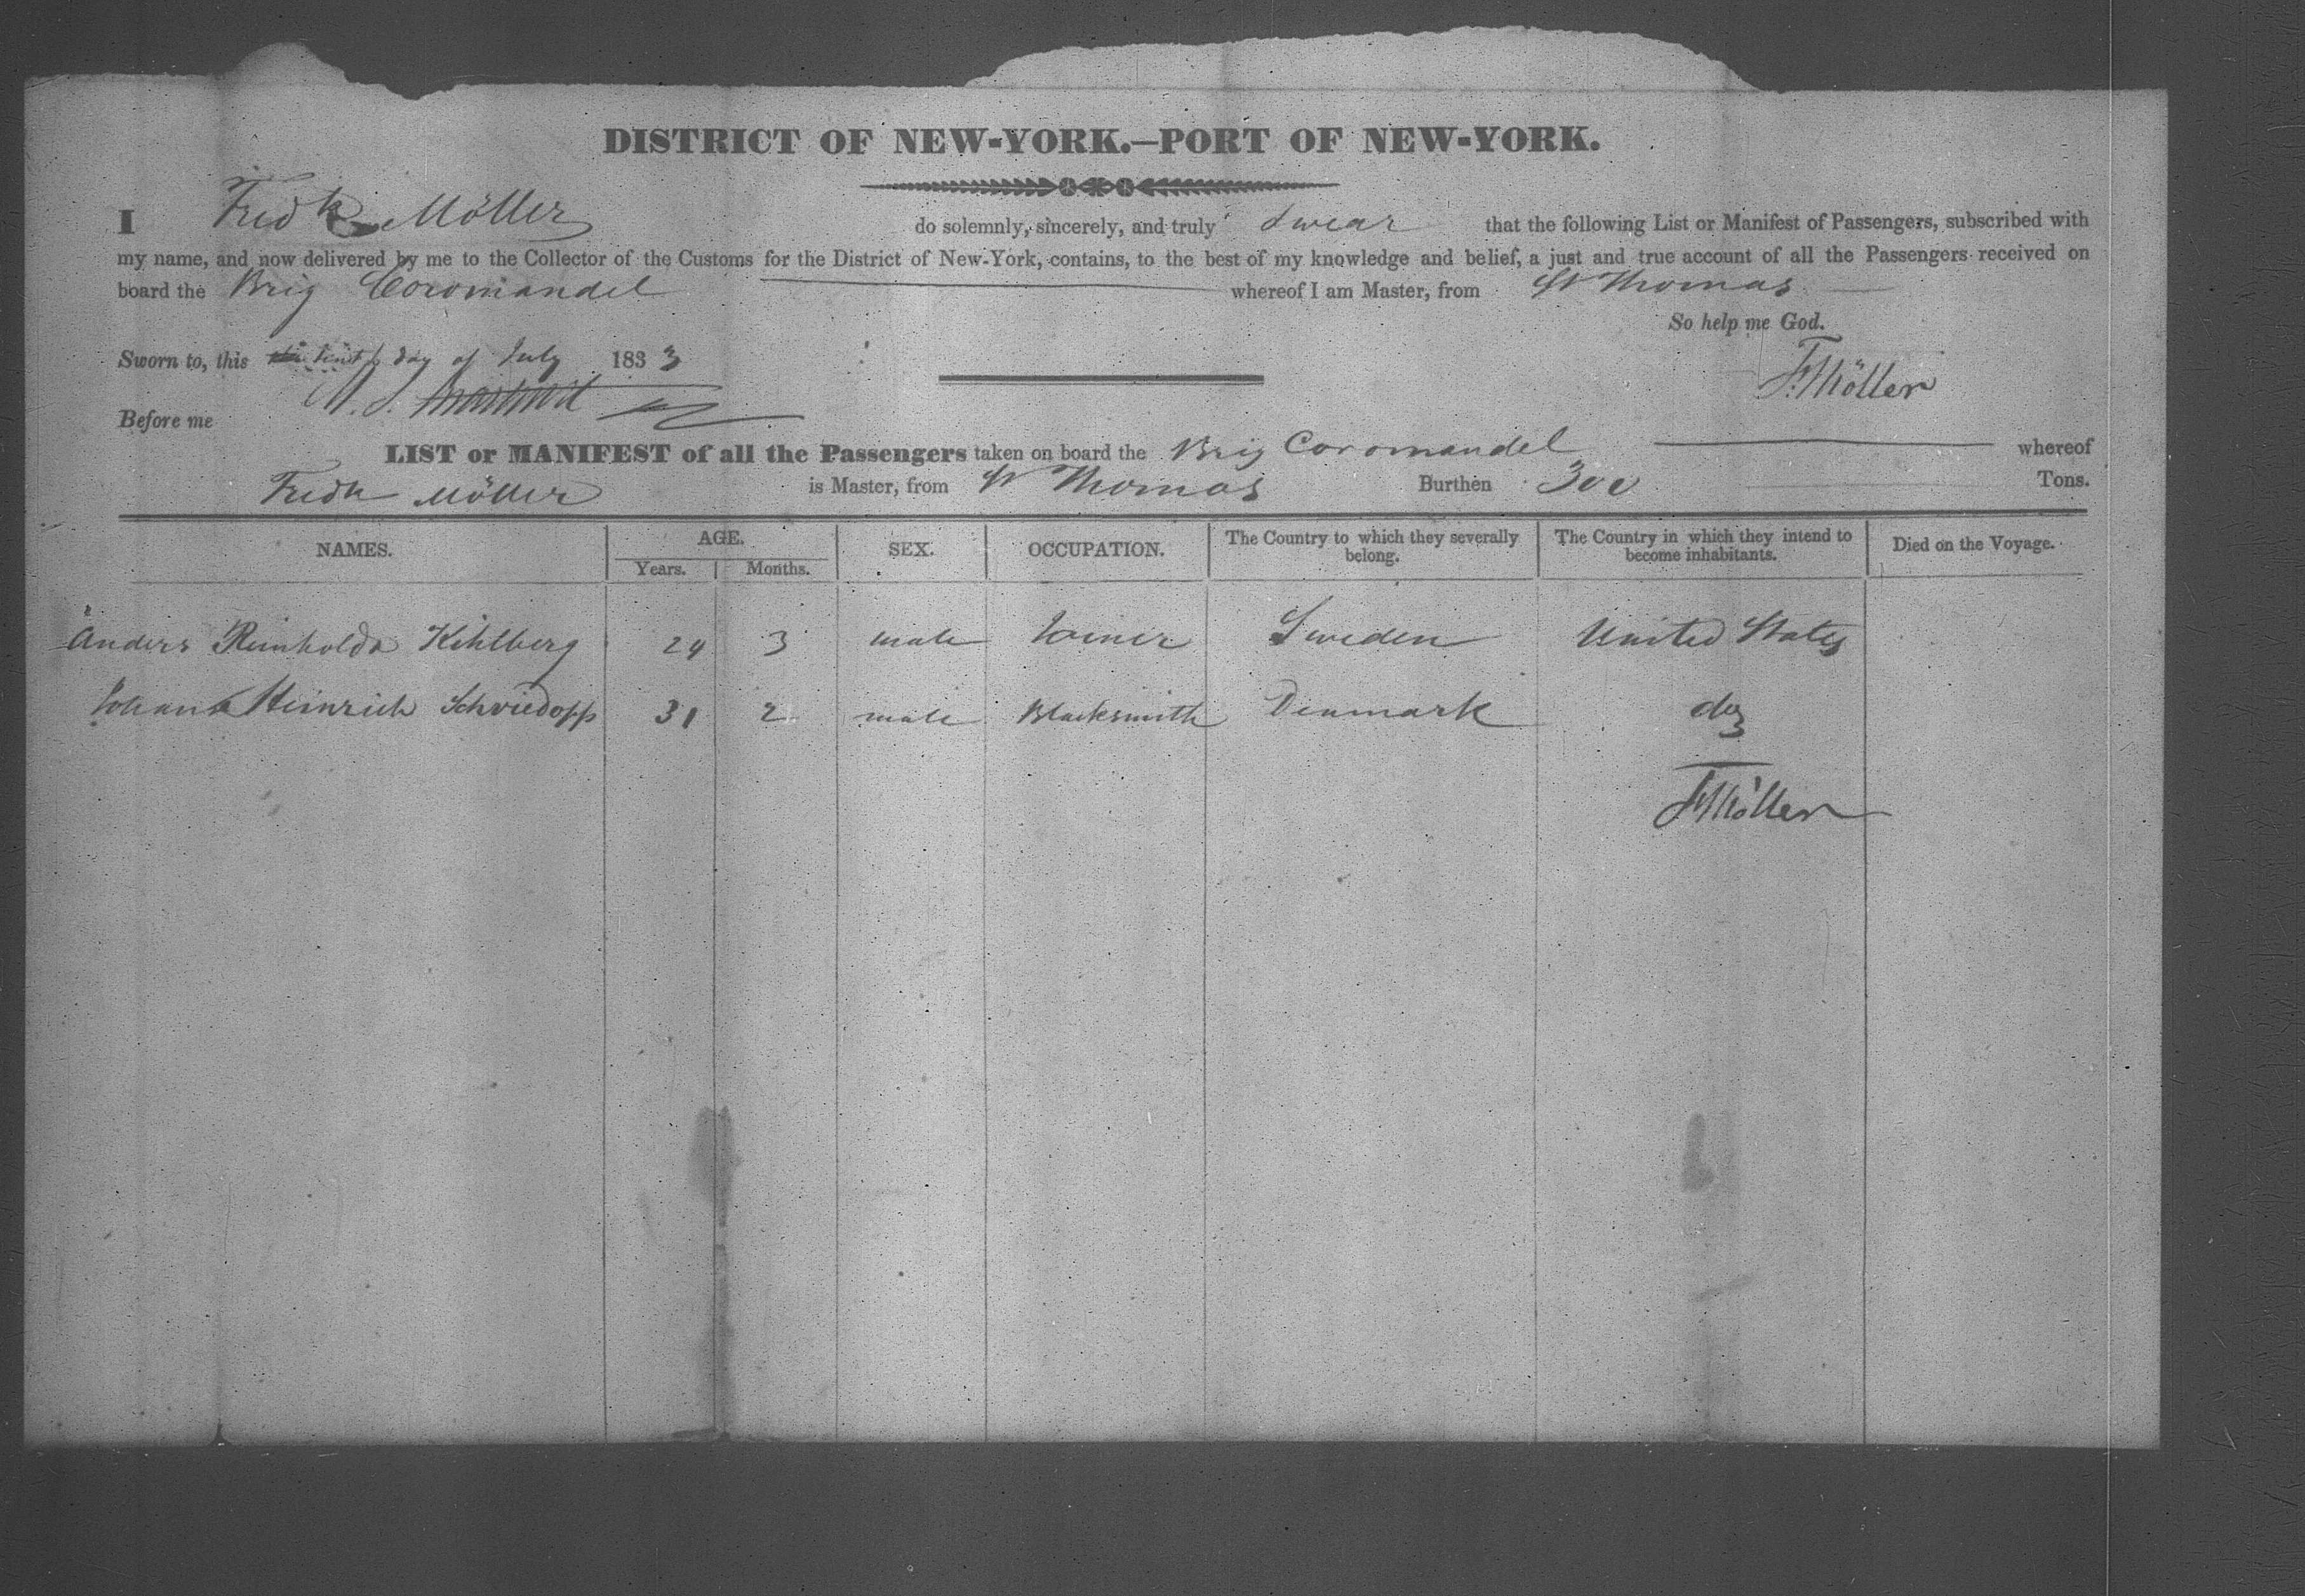 DISTRICT OF NEW-YORK.—PORT OF NEW-YORK.
I Fredk Möller do solemnly, sincerely, and truly swear that the following List or Manifest of Passengers, subscribed with
my name, and now delivered by me to the Collector of the Customs for the District of New-York, contains, to the best of my knowledge and belief, a just and true account of all the Passengers received on
board the Brig Coromandel whereof I am Master, from St Thomas
So help me God.
Sworn to, this tenth day of July 1833
F. Möller
Before me
LIST or MANIFEST of all the Passengers taken on board the Brig Coromandel whereof
Fredk Möller is Master, from St Thomas Burthen 300 Tons.
NAMES. AGE. Years. Months. SEX. OCCUPATION. The Country to which they severally belong. The Country in which they intend to become inhabitants. Died on the Voyage.
Anders Reinholdo Kihlberg 24 3 male Sweden United States
Johans Heinrich Schviedopp 31 2 male Blacksmith Denmark do
F Möller